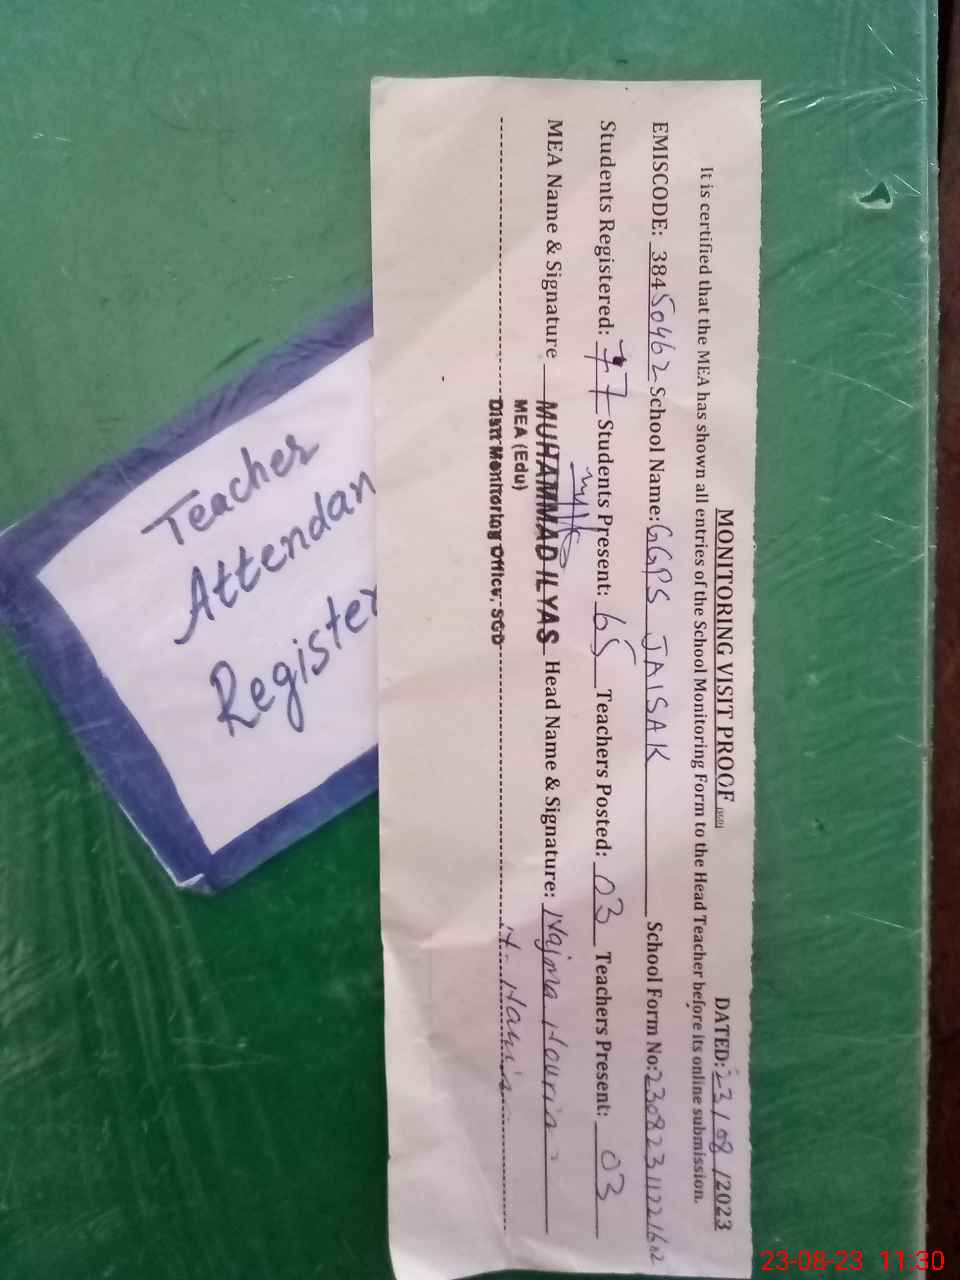 MONITORING VISIT PROOF DATED: 23/08/2023
It is certified that the MEA has shown all entries of the School Monitoring Form to the Head Teacher before its online submission.
EMISCODE: 38450462 School Name: GGPS JAISAK School Form No: 230823112216
Students Registered: 77 Students Present: 65 Teachers Posted: 03 Teachers Present: 03
MEA Name & Signature MUHAMMAD ILYAS Head Name & Signature: Najma Hourin
MEA (Edu)
Distt Monitoring Office, SGD
Teacher
Attendan
Register
23-08-23 11:30